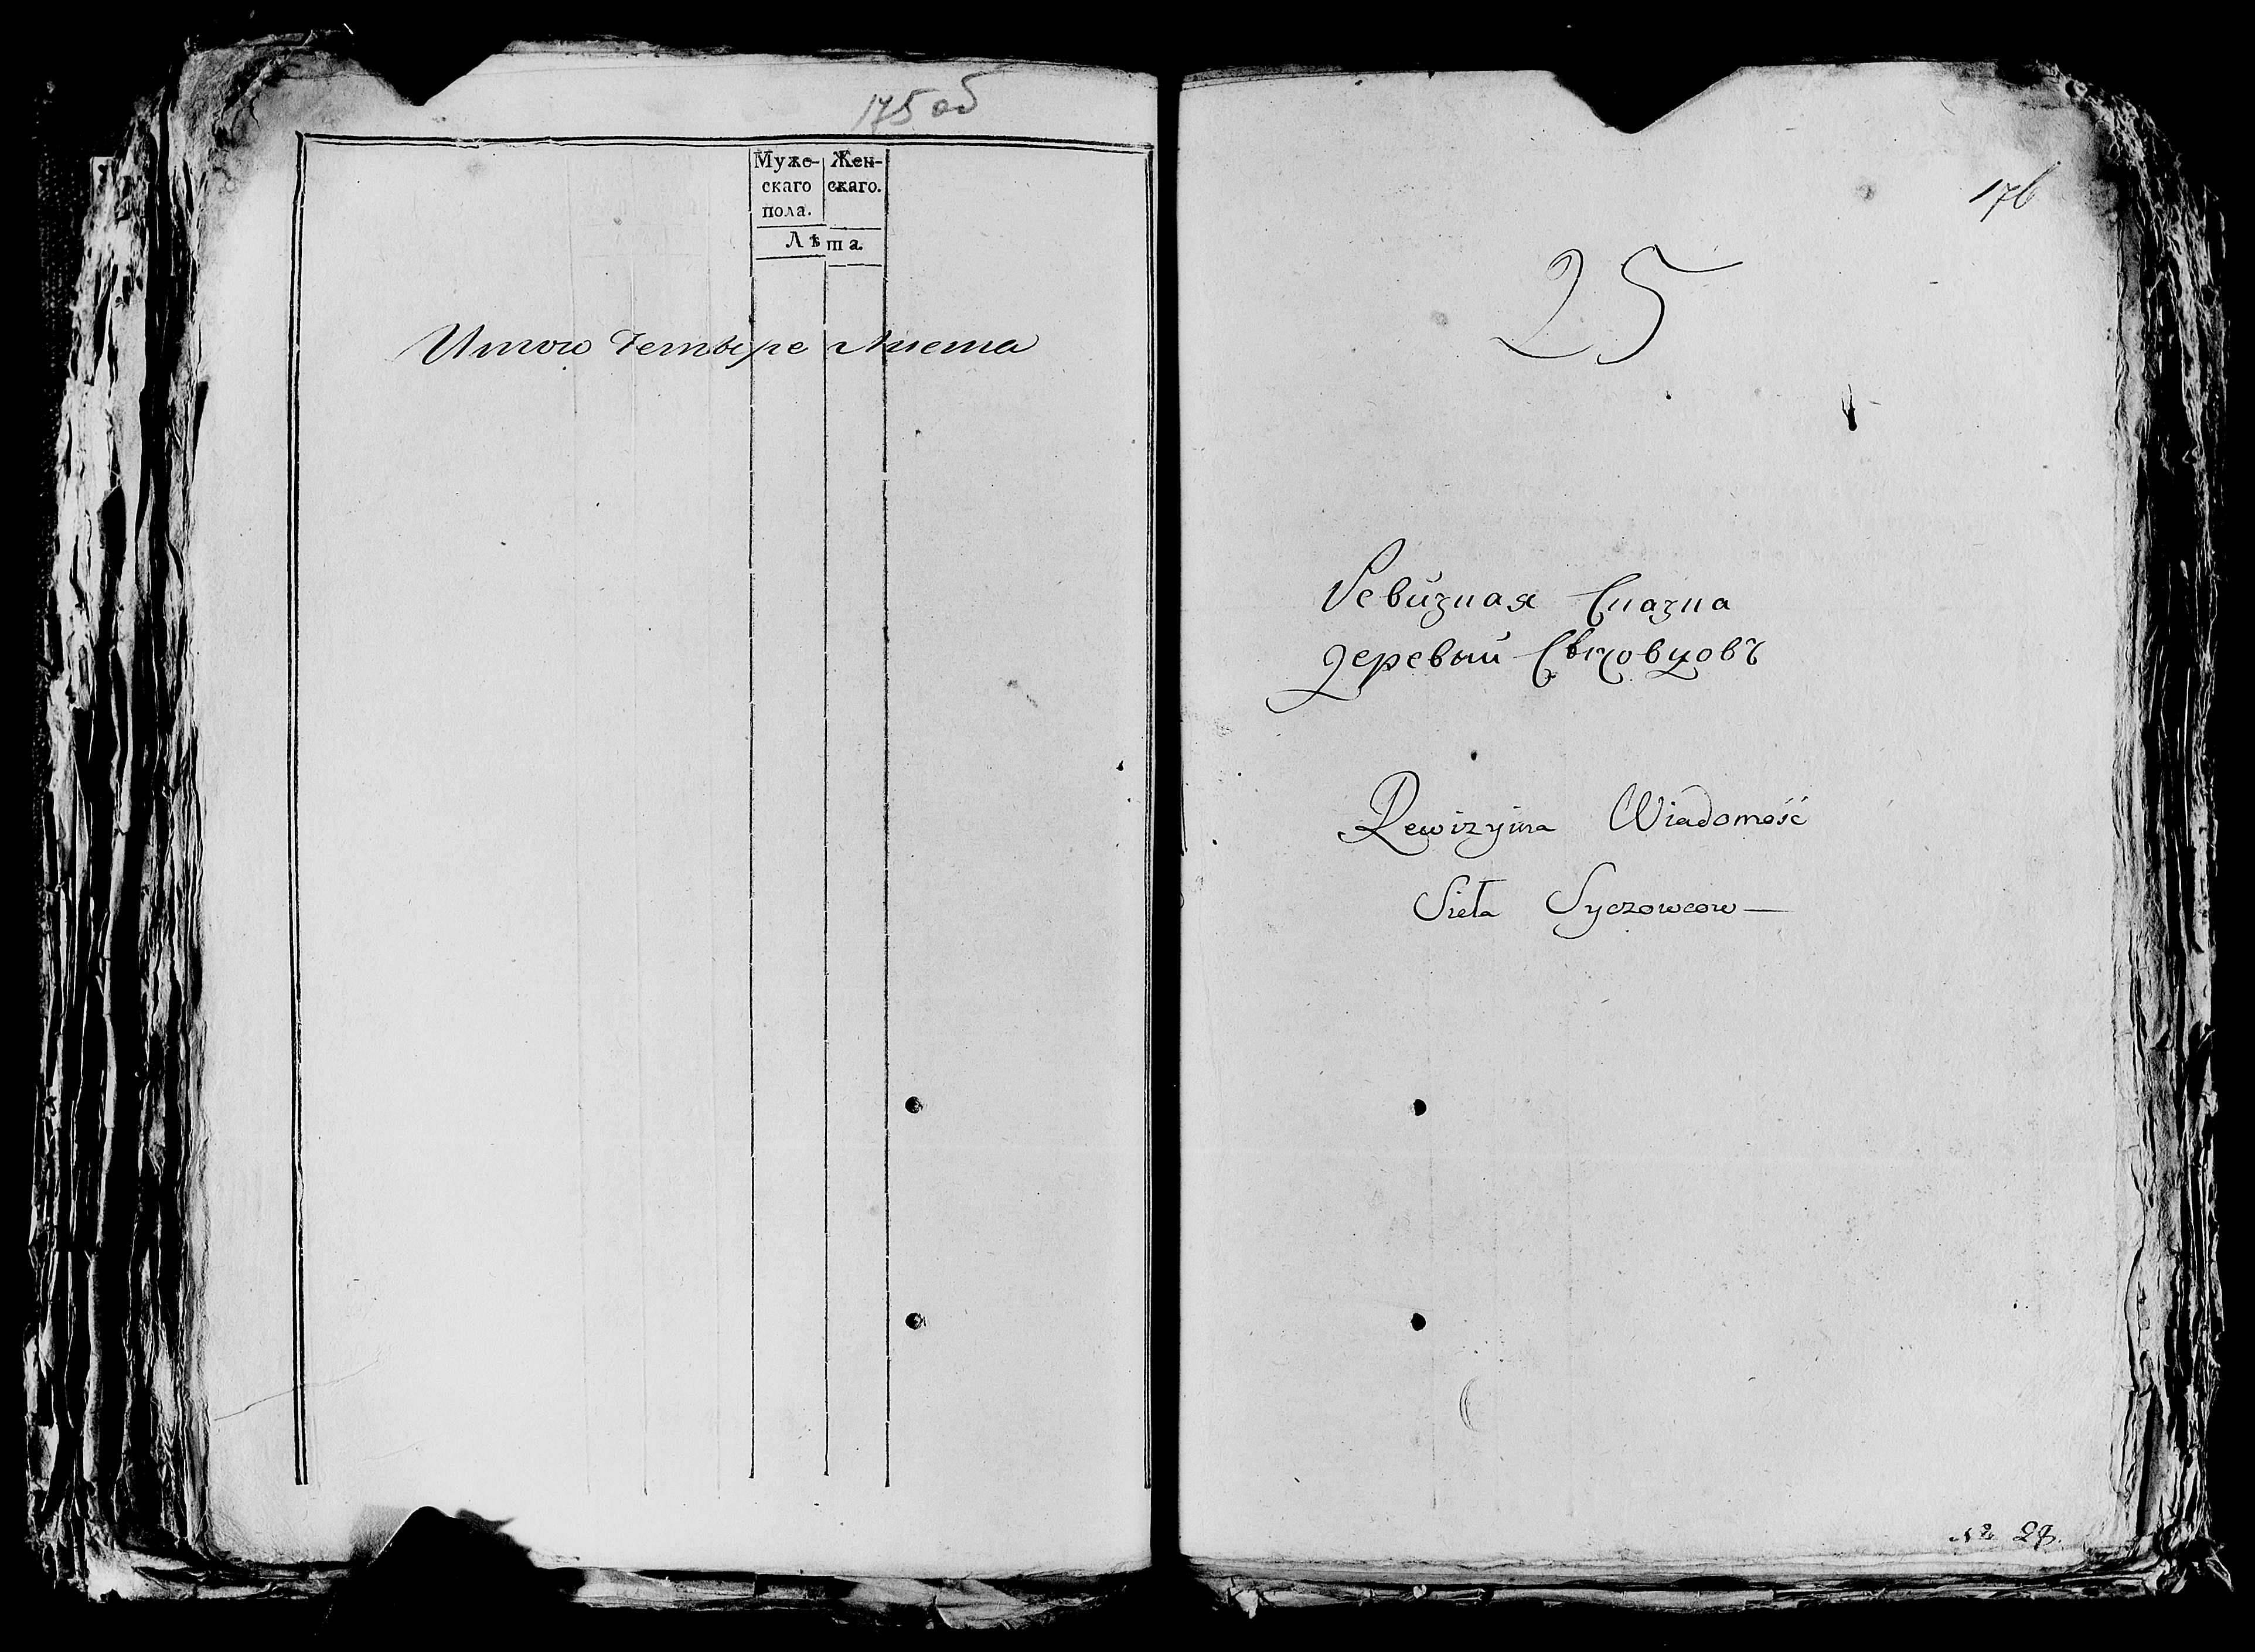 175 об
Муже- Жен-
скаго скаго.
пола.
Лѣта.
Итого Четыре Листа
176
25
Ревизная Сказка
деревни Сычовцовъ
Rewizyina Wiadomość
Sieła Syczowcow —
№ 28.